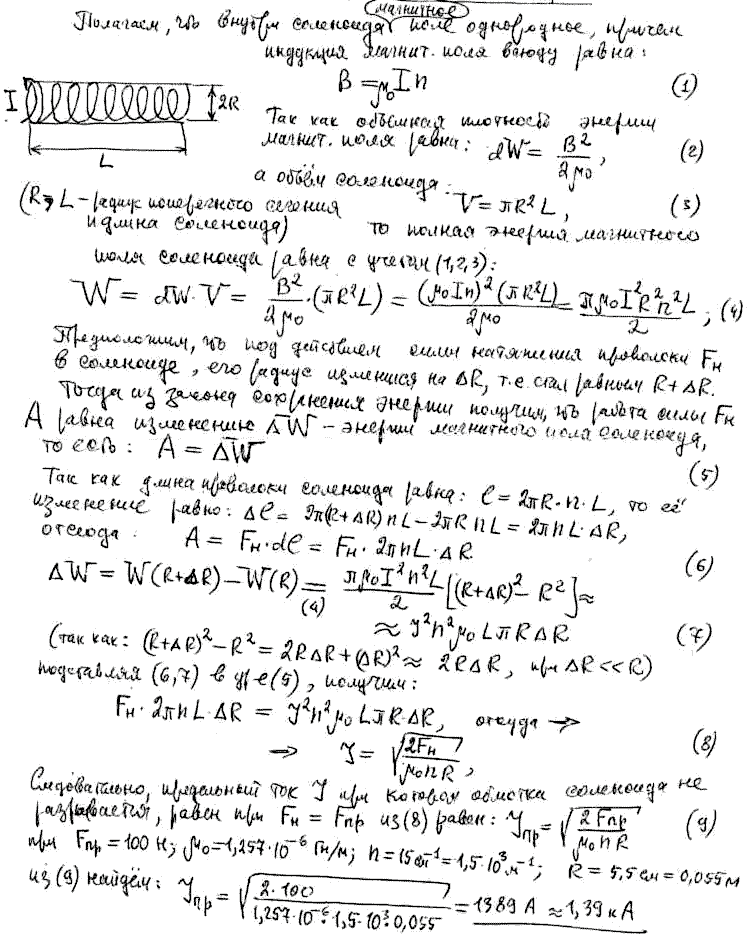 магнитное
Полагаем, что внутри соленоида поле однородное, причем
индукция магнит. поля всюду равна:
B = μ₀In (1)
I 2R
L
Так как объёмная плотность энергии
магнит. поля равна: dW = B²/2μ₀, (2)
а объём соленоида: V = πR²L, (3)
(R, L – радиус поперечного сечения
и длина соленоида) то полная энергия магнитного
поля соленоида равна с учетом (1,2,3):
W = dW·V = B²/2μ₀·(πR²L) = (μ₀In)²(πR²L)/2μ₀ = πμ₀I²R²n²L/2; (4)
Предположим, что под действием силы натяжения проволоки Fн
в соленоиде, его радиус изменился на ΔR, т.е. стал равным R+ΔR.
Тогда из закона сохранения энергии получим, что работа силы Fн
A равна изменению ΔW – энергии магнитного поля соленоида,
то есть: A = ΔW (5)
Так как длина проволоки соленоида равна: l = 2πR·n·L, то её
изменение равно: Δl = 2π(R+ΔR)nL – 2πRnL = 2πnL·ΔR,
отсюда: A = Fн·dl = Fн·2πnL·ΔR (6)
ΔW = W(R+ΔR) – W(R) =(4) πμ₀I²n²L/2 [(R+ΔR)² – R²] ≈
≈ I²n²μ₀LπRΔR (7)
(так как: (R+ΔR)² – R² = 2RΔR + (ΔR)² ≈ 2RΔR, при ΔR << R)
подставляя (6,7) в ур-е (5), получим:
Fн·2πnL·ΔR = I²n²μ₀LπR·ΔR, откуда →
→ I = √(2Fн/μ₀nR), (8)
Следовательно, предельный ток I при котором обмотка соленоида не
разрывается, равен при Fн = Fпр из (8) равен: Iпр = √(2Fпр/μ₀nR) (9)
при Fпр = 100 Н; μ₀ = 1,257·10⁻⁶ Гн/м; n = 15 см⁻¹ = 1,5·10³ м⁻¹; R = 5,5 см = 0,055 м
из (9) найдём: Iпр = √(2·100/1,257·10⁻⁶·1,5·10³·0,055) = 1389 А ≈ 1,39 кА